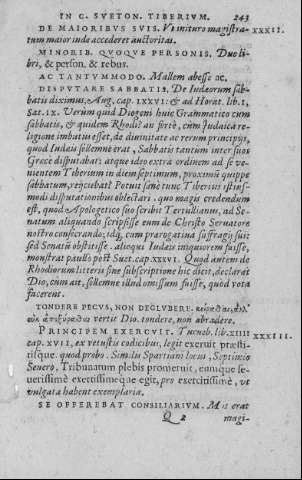 IN C. SVETON. TIBERIVM. 243
DE MAIORIBVS SVIS. Vt inituro magistra- XXXII.
tum maior inde accederet auctoritas.
MINORIB. QVOQVE PERSONIS. Duo li-
bri, & person. & rebus.
AC TANTVMMODO. Mallem abesse ac.
DISPVTARE SABBATIS. De Iudæorum sab-
batis diximus, Aug. cap. LXXVI. & ad Horat. lib. I,
Sat. IX. Verùm quid Diogeni huic Grammatico cum
sabbatis, & quidem Rhodi? an fortè, cum Iudaica re-
ligione imbutus esset, de diuinitate ac rerum principijs,
quod Iudæis sollemne erat, Sabbatis tantùm inter suos
Grecè disputabat: atque ideo extra ordinem ad se ve-
nientem Tiberium in diem septimum, proximū quippe
sabbatum, reijciebat? Potuit sanè tunc Tiberius istius-
modi disputationibus oblectari. quo magis credendum
est, quod Apologetico suo scribit Tertullianus, ad Se-
natum aliquando scripsisse eum de Christo Seruatore
nostro consecrando; idq́, cum prærogatiua suffragij sui:
sed Senatū obstitisse. alioqui Iudæis iniquiorem fuisse,
monstrat paullo pòst Suet. cap. XXXVI. Quod autem de
Rhodiorum litteris sine subscriptione hic dicit, declarat
Dio, cùm ait, sollemne illud omissum fuisse, quod vota
facerent.
TONDERE PECVS, NON DEGLVBERE.
vertit Dio. tondere, non abradere.
PRINCIPEM EXERCVIT. Turneb. lib. XIIII XXXIII.
cap. XVII, ex vetustis codicibus, legit exeruit præsti-
titsque. quod probo. Similis Spartiani locus, Septimio
Seuero. Tribunatum plebis promeruit, eumque se-
uerissimè exertissimeque egit, pro exercitissimè, vt
vulgata habent exemplaria.
SE OFFEREBAT CONSILIARIVM. Mos erat
Q 2 magi-